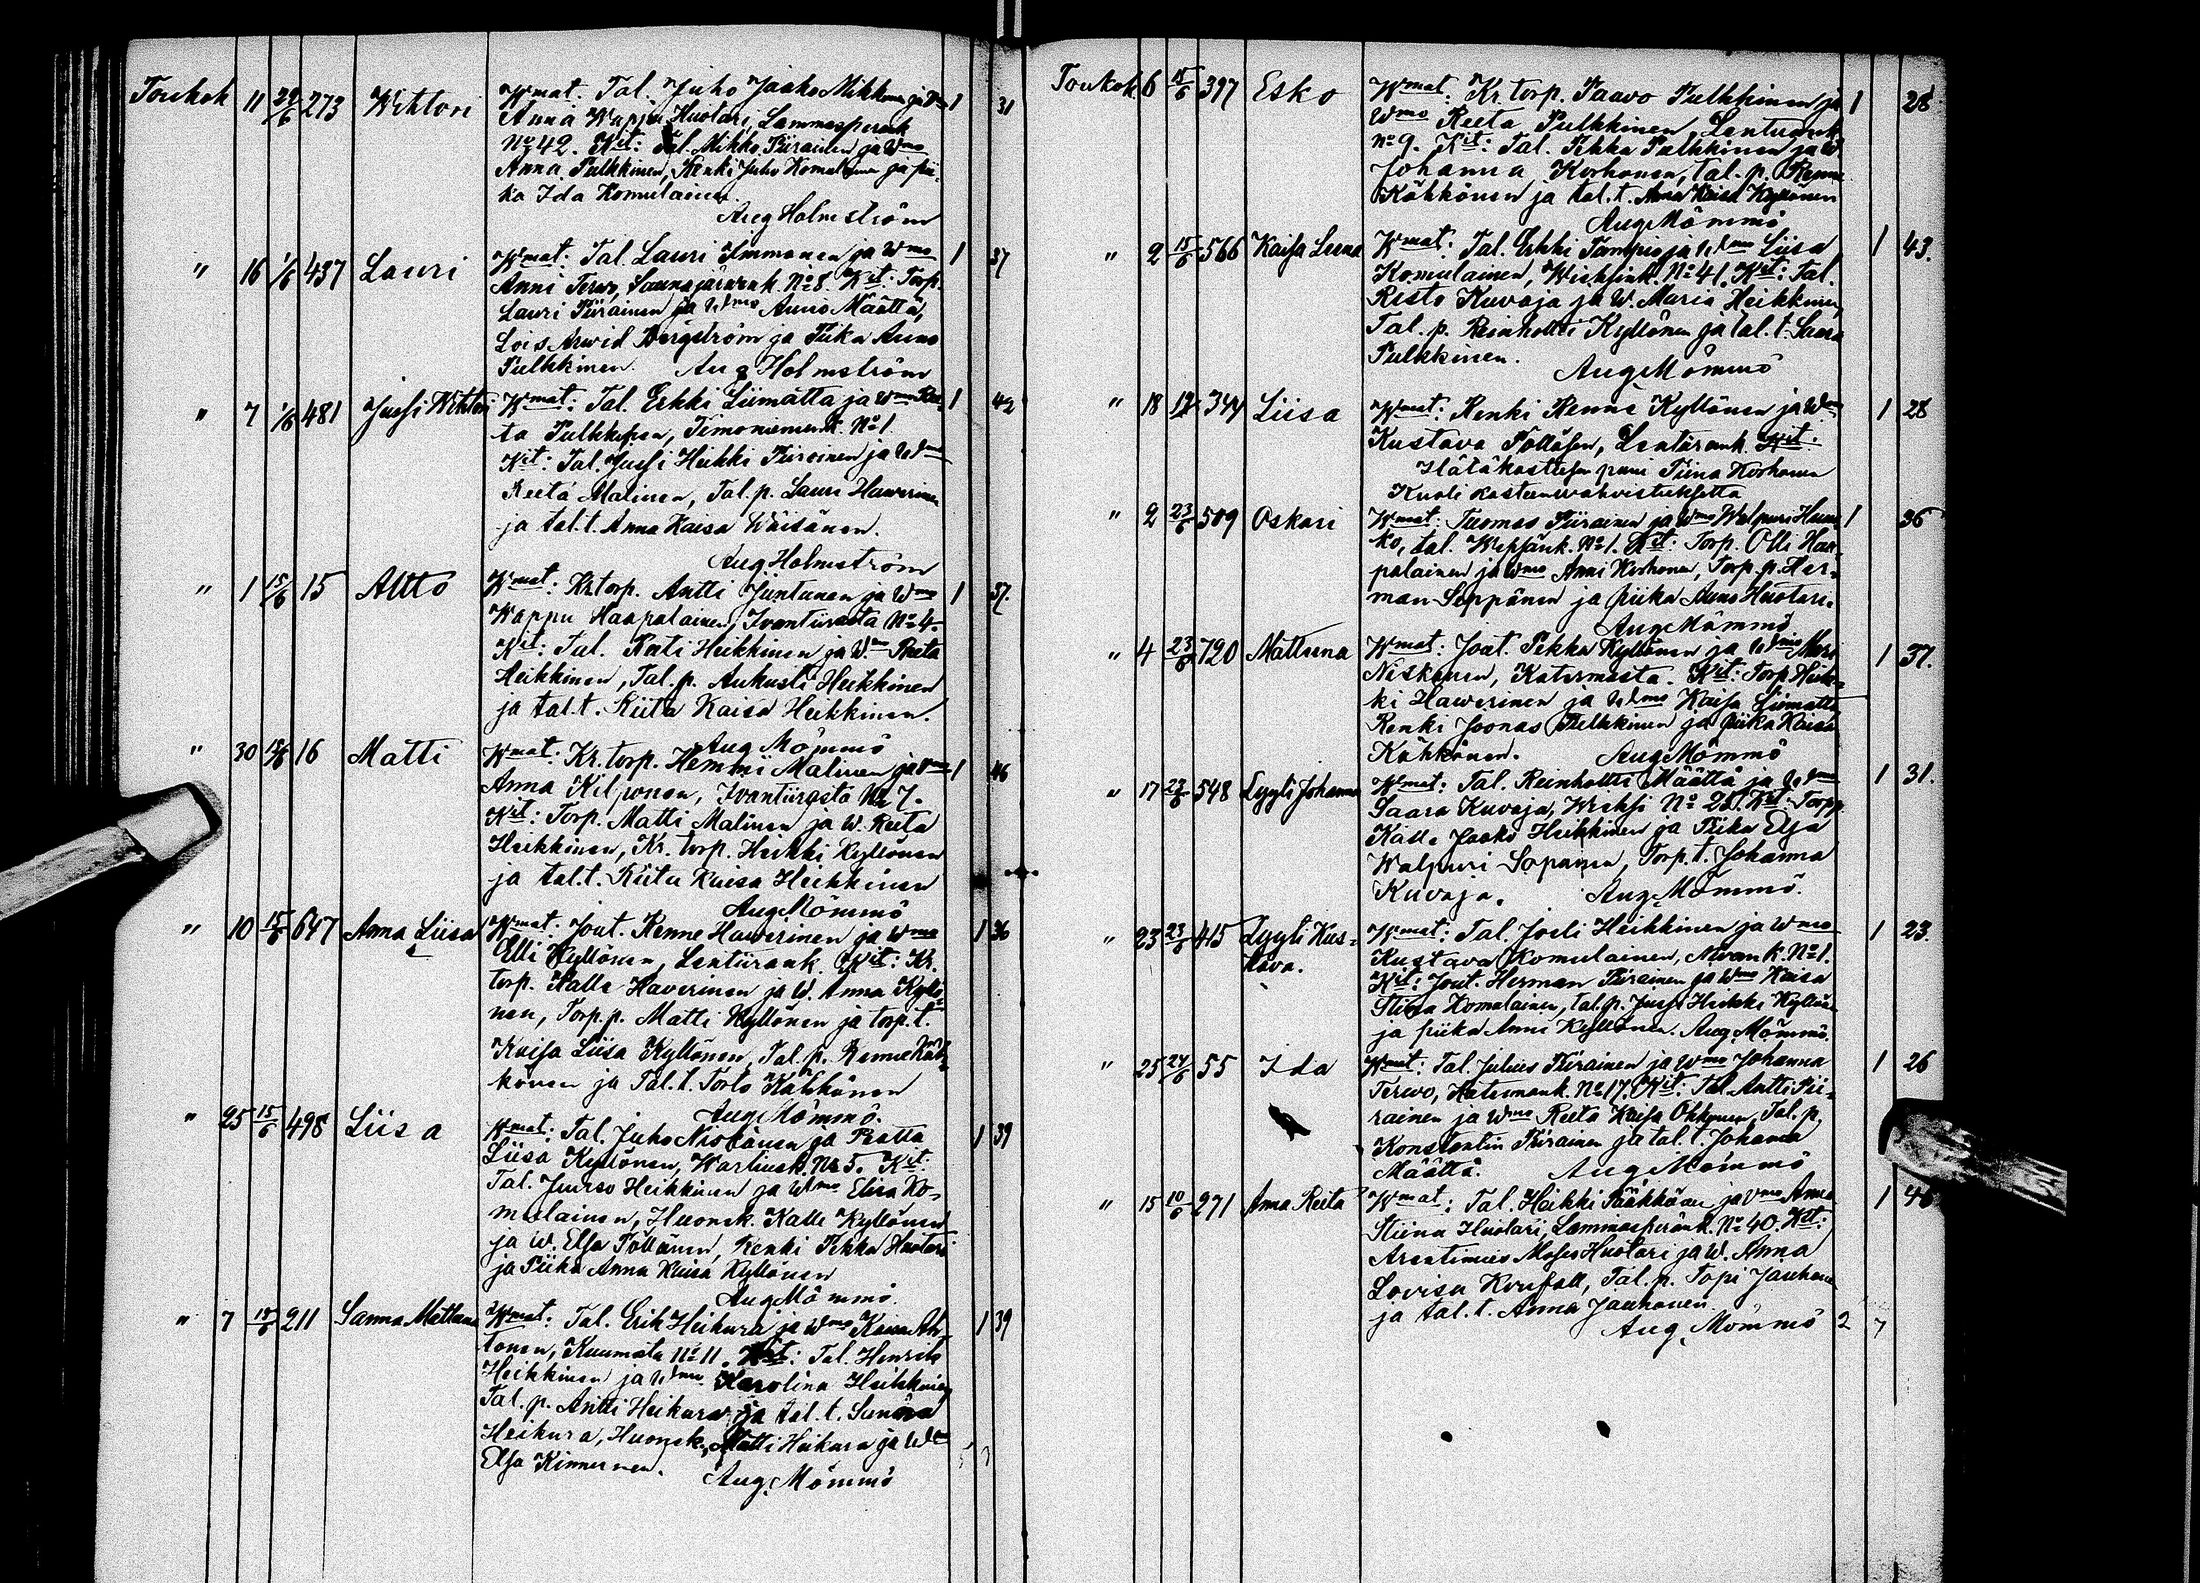 Toukok 11 29/5 273 Wihtori Wmat: Tal. Juho Jaako Mikkonen ja Wmo 1 31
Anna Wappu Huotari, Lammasperank
No 42. Kit: Tal. Mikko Piirainen ja Wmo
Anna Pulkkinen, Renki Juho Komulainen ja pii-
ka Ida Komulainen.
Aug Holmström
" 16 1/6 437 Lauri Wmat: Tal. Lauri Immonen ja Wmo 1 37
Anni Terwo, Saunajärwenk. No 8. Kit: Torp.
Lauri Piirainen ja Wmo Anna Määttä,
Lois Arwid Bergström ja Piika Anna
Pulkkinen. Aug Holmström
" 7 1/6 481 Jussi Wihtori Wmat: Tal. Erkki Liimatta ja Wmo Ree- 1 42
ta Pulkkinen, Timoniemenk. No 1.
Kit: Tal. Jussi Heikki Piirainen ja Wmo
Reeta Malinen, Tal. p. Lauri Hawerinen
ja tal. t. Anna Kaisa Wäisänen.
Aug. Holmström
" 1 15/6 15 Altto Wmat: Kr. torp. Antti Juntunen ja Wmo 1 37.
Wappu Haapalainen, Iwantiirasta No 4.
Kit: Tal. Heikkinen ja Wmo Reeta
Heikkinen, Tal. p. Aukusti Heikkinen
ja tal. t. Riita Kaisa Heikkinen.
Aug. Mömmö
" 30 15/6 16 Matti Wmat: Kr. torp. Hemmi Malinen ja Wmo 1 46
Anna Kilponen, Iwantiirasta No 7.
Kit: Torp. Matti Malinen ja W. Reeta
Heikkinen, Kr. torp. Heikki Kyllönen
ja tal. t. Riita Kaisa Heikkinen
Aug. Mömmö
" 10 15/6 647 Anna Liisa Wmat: Jout. Renne Hawerinen ja Wmo 1 36
Elli Kyllönen, Lentiirank. Kit: Kr.
torp. Kalle Haverinen ja W. Anna Kyllö-
nen, Torp. p. Matti Kyllönen ja torp. t.
Kaisa Liisa Kyllönen, Tal. p. Renne Käh-
könen ja Tal. t. Kähkönen
Aug. Mömmö.
" 25 15/6 498 Liisa Wmat: Tal. Juho Niskanen ja 1 39
Liisa Kyllönen, Wartiusk. No 5. Kit:
Tal. Heikkinen ja Wmo Elisa Ko-
mulainen, Huonek. Kalle Kyllönen
ja W. Elsa Pöllänen, Renki Pekka Huotari
ja Piika Anna Kaisa Kyllönen
Aug Mömmö.
" 7 15/6 211 Sanna Mattleena Wmat: Tal. Erik Heikura ja Wmo Ah- 1 39
tonen, Kuumala No 11. Kit: Tal. Henrik
Heikkinen ja Wmo Karolina Heikkinen,
Tal. p. Antti Heikura ja tal. t. Sanna
Heikura, Huonek. Matti Heikura ja Wmo
Elsa Kinnunen. Aug. Mömmö
Toukok 6 15/6 397 Esko Wmat: Kr. torp. Paavo Pulkkinen ja 1 28
Wmo Reeta Pulkkinen, Lentuank.
No 9. Kit: Tal. Pekka Pulkkinen ja W.
Johanna Korhonen, tal. p. Renne
Kähkönen ja tal. t. Anna Kaisa Kyllönen
Aug Mömmö
" 2 15/6 566 Kaisa Leena Wmat: Tal. Erkki Tampio ja Wmo Liisa 1 43.
Komulainen, No 41. Kit: Tal.
Risto Kuvaja ja W. Maria Heikkinen,
Tal. p. Reinhottti Kyllönen ja tal. t. Saara
Pulkkinen. Aug Mömmö
" 18 344 Liisa Wmat: Renki Renne Kyllönen ja Wmo 1 28
Kustava Pöllänen, Lentiirank. Kit:
Hätäkasteen pani Tiina Korhonen
Kuoli kasteenwahvistuksetta
" 2 23/6 509 Oskari Wmat: Tuomas Piirainen ja Wmo Walpuri Huus- 1 36
ko, tal. Wepsänk. No 1. Kit: Torp. Olli Haa-
palainen ja Wmo Anni Korhonen, Torp. p. Her-
man Seppänen ja piika Anna Huotari.
Aug Mömmö
" 4 23/6 720 Mattleena Wmat: Jout. Pekka Kyllönen ja Wmo Mari 1 37.
Niskanen, Katermasta. Kit: Torp. Heik-
ki Hawerinen ja Wmo Kaisa Liimatta,
Renki Joonas Pulkkinen ja piika Kaisa
Kähkönen. Aug Mömmö
" 17 23/6 548 Lyyli Johanna Wmat: Tal. Reinhottti Määttä ja Wmo 1 31.
Saara Kuvaja, Wieksi No 28. Kit: Torpp.
Kalle Jaako Heikkinen ja Piika Elsa
Walpuri Sopanen, Torp. t. Johanna
Kuvaja. Aug. Mömmö.
" 23 23/6 415 Lyyli Kus- Wmat: Tal. Joeli Heikkinen ja Wmo 1 23.
tava. Kustava Komulainen, Nivank. No 1.
Kit: Jout. Herman Piirainen ja Wmo Kaisa
Stiina Komulainen, tal. p. Jussi Heikki Kyllönen
ja piika Anni Kyllönen. Aug. Mömmö.
" 25 24/6 55 Ida Wmat: Tal. Julius Piirainen ja Wmo Johanna 1 26
Terwo, Katermank. No 17. Kit: Tal. Antti Pii-
rainen ja Wmo Reeta Kaisa Ohtonen, Tal. p.
Konstantin Piirainen ja tal. t. Johanna
Määttä. Aug Mömmö
" 15 10/6 271 Anna Reeta Wmat: Tal. Heikki Pääkkönen ja Wmo Anna 1 46
Stiina Huotari, Lammasperänk. No 40. Kit:
Moses Huotari ja W. Anna
Lovisa, Tal. p. Topi Jauhonen
ja tal. t. Anna Jauhonen.
Aug. Mömmö 2 7